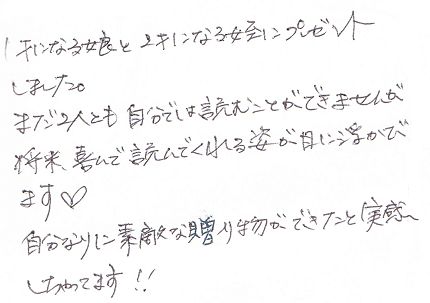 1才になる娘と2才になる姪にプレゼント
しました。
まだ2人とも自分では読むことができませんが
将来、喜んで読んでくれる姿が目に浮かび
ます♡
自分なりに素敵な贈り物ができたと実感
しちゃてます!!